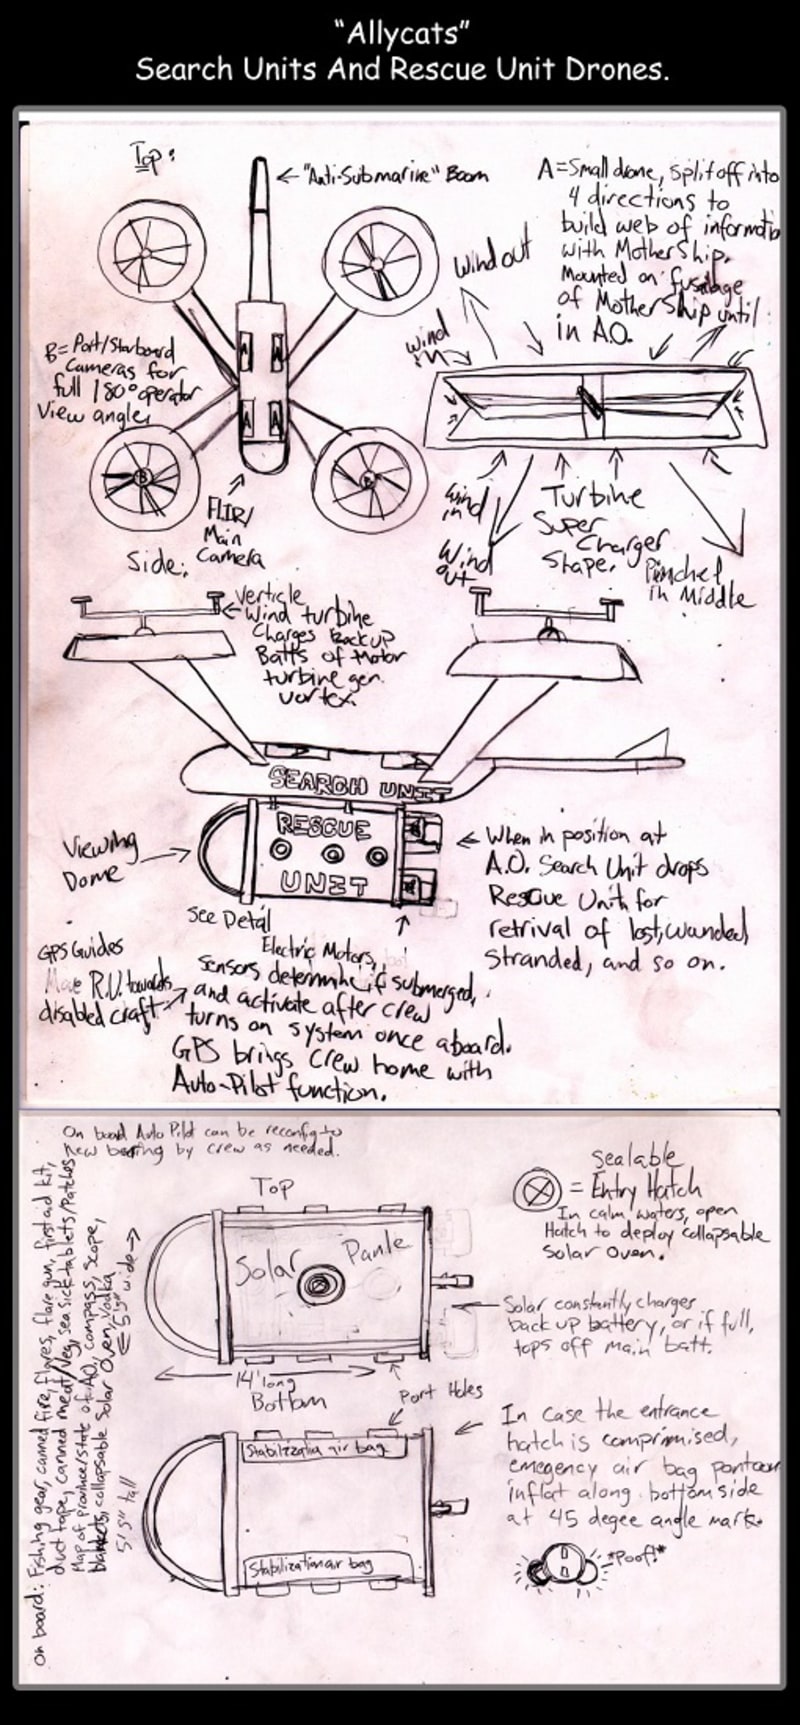 “Allycats”
Search Units And Rescue Unit Drones.
Top:
"Anti-Submarine" Boom
A=Small drone, split off into
4 directions to
build web of informatio
with MotherShip.
Mounted on fuselage
of MotherShip until
in A.O.
Wind out
wind
in
B= Port/Starboard
Cameras for
full 180° operator
View angle,
A
A
A
A
B
B
FLIR/
Main
Camera
Wind
in
Wind
out
Turbine
Super
Charger
Shape.
Pinched
in Middle
Side:
Verticle
Wind turbine
Charges Backup
Batts of Motor
turbine gen.
vortex.
SEARCH UNIT
RESCUE
UNIT
Viewing
Dome
See Detal
When in position at
A.O. Search Unit drops
Rescue Unit for
retrival of lost, wounded,
Stranded, and so on.
GPS Guides
Move R.U. towards
disabled craft
Electric Motors,
sensors determine if submerged,
and activate after crew
turns on system once aboard.
GPS brings crew home with
Auto-Pilot function.
On board Auto Pilot can be reconfig to
new bearing by crew as needed.
On board: Fishing gear, canned fire, flares, flare gun, first aid kit,
duct tape, canned meat/veg, sea sick tablets/Patches
Map of province/state of AO, compass, scope,
blankets, collapsable Solar Oven, Vodka
5'5" wide
5'5" tall
Top
Solar Panle
14' long
Bottom
Port Holes
Stabilizzatia air bag
Stabilization air bag
Sealable
= Entry Hatch
In calm waters, open
Hatch to deploy collapsable
Solar Oven.
Solar constantly charges
back up battery, or if full,
tops off main batt.
In case the entrance
hatch is comprimised,
emegency air bag pontoon
inflat along bottom side
at 45 degee angle mark.
*Poof!*